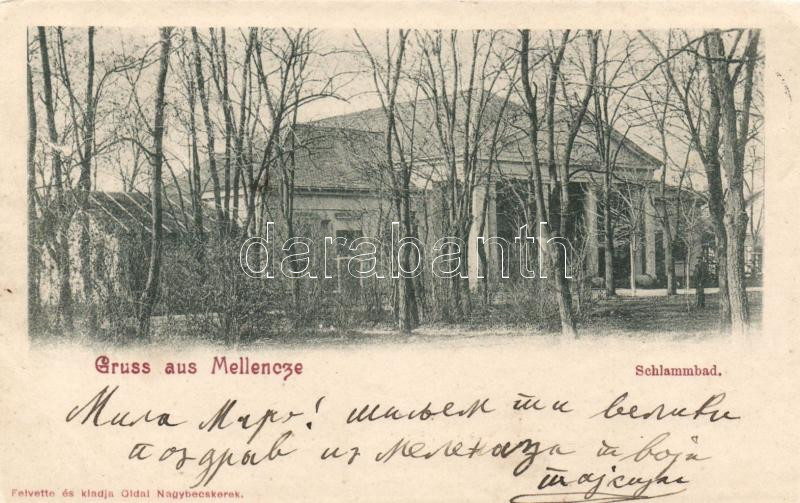 darabanth
Gruss aus Mellencze
Schlammbad.
Мила Маро! шиљем ти велики
поздрав из Меленаца твоја
Felvette és kiadja Oldal Nagybecskerek.